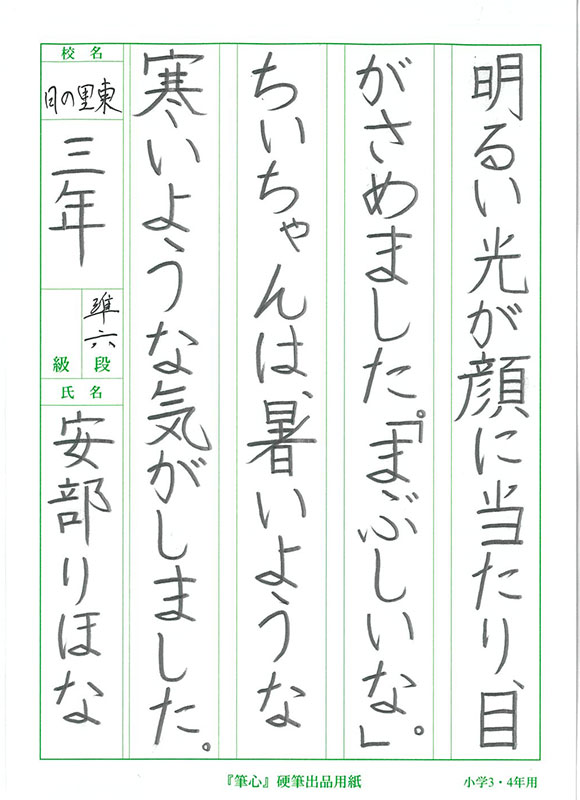 明るい光が顔に当たり、目
がさめました。「まぶしいな。」
ちいちゃんは、暑いような
寒いような気がしました。
校名
日の里東
三年
準六
段
級
氏名
安部りほな
『筆心』硬筆出品用紙
小学3・4年用